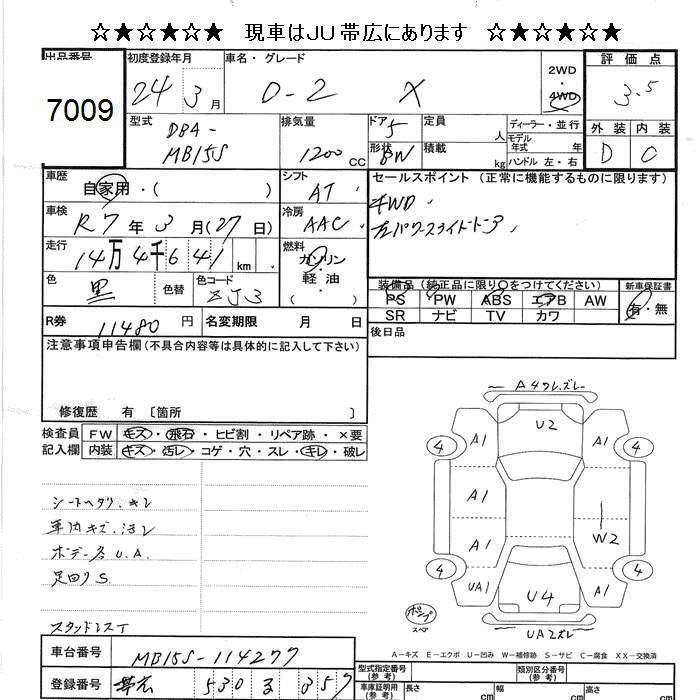 ☆★☆★☆★ 現車はJU帯広にあります ☆★☆★☆★
出品番号 初度登録年月 車名・グレード 2WD・4WD 評価点
7009 24 3月 D-2 X 3.5
型式 DBA-MB15S 排気量 1200cc ドア 5 形状 BW 定員 人 積載 kg ディーラー・並行 モデル年式 年式 ハンドル 左・右 外装 内装 D C
車歴 自家用・( ) シフト AT セールスポイント (正常に機能するものに限ります)
車検 R7年3月(27日) 冷房 AAC 4WD
走行 14万4千641km 燃料 ガソリン・軽油( ) 左パワースライドドア
色 黒 色替 色コード ZJ3 装備品(純正品に限り○をつけてください) 新車保証書
PS PW ABS エアB AW 有・無
SR ナビ TV カワ
R券 11480円 名変期限 月 日 後日品
注意事項申告欄(不具合内容等は具体的に記入して下さい)
修復歴 有 〔箇所 〕
検査員記入欄 FW キズ・飛石・ヒビ割・リペア跡・×要
内装 キズ・汚レ・コゲ・穴・スレ・キレ・破レ
シートヘタリ、キレ
車内キズ、汚レ
ボデー各U.A.
足回りS
スタッドレスT
A4ワレ.ズレ
U2
4 A1 A1 4
A1
A1 W2
4 UA1 A1 4
U4
UA2ズレ
ポンプ
スペア
A-キズ E-エクボ U-凹み W-補修跡 S-サビ C-腐食 XX-交換済
車台番号 MB15S-114277
登録番号 帯広 530 る 357
型式指定番号(参考) 類別区分番号(参考)
車庫証明用(参考) 長さ cm 幅 cm 高さ cm